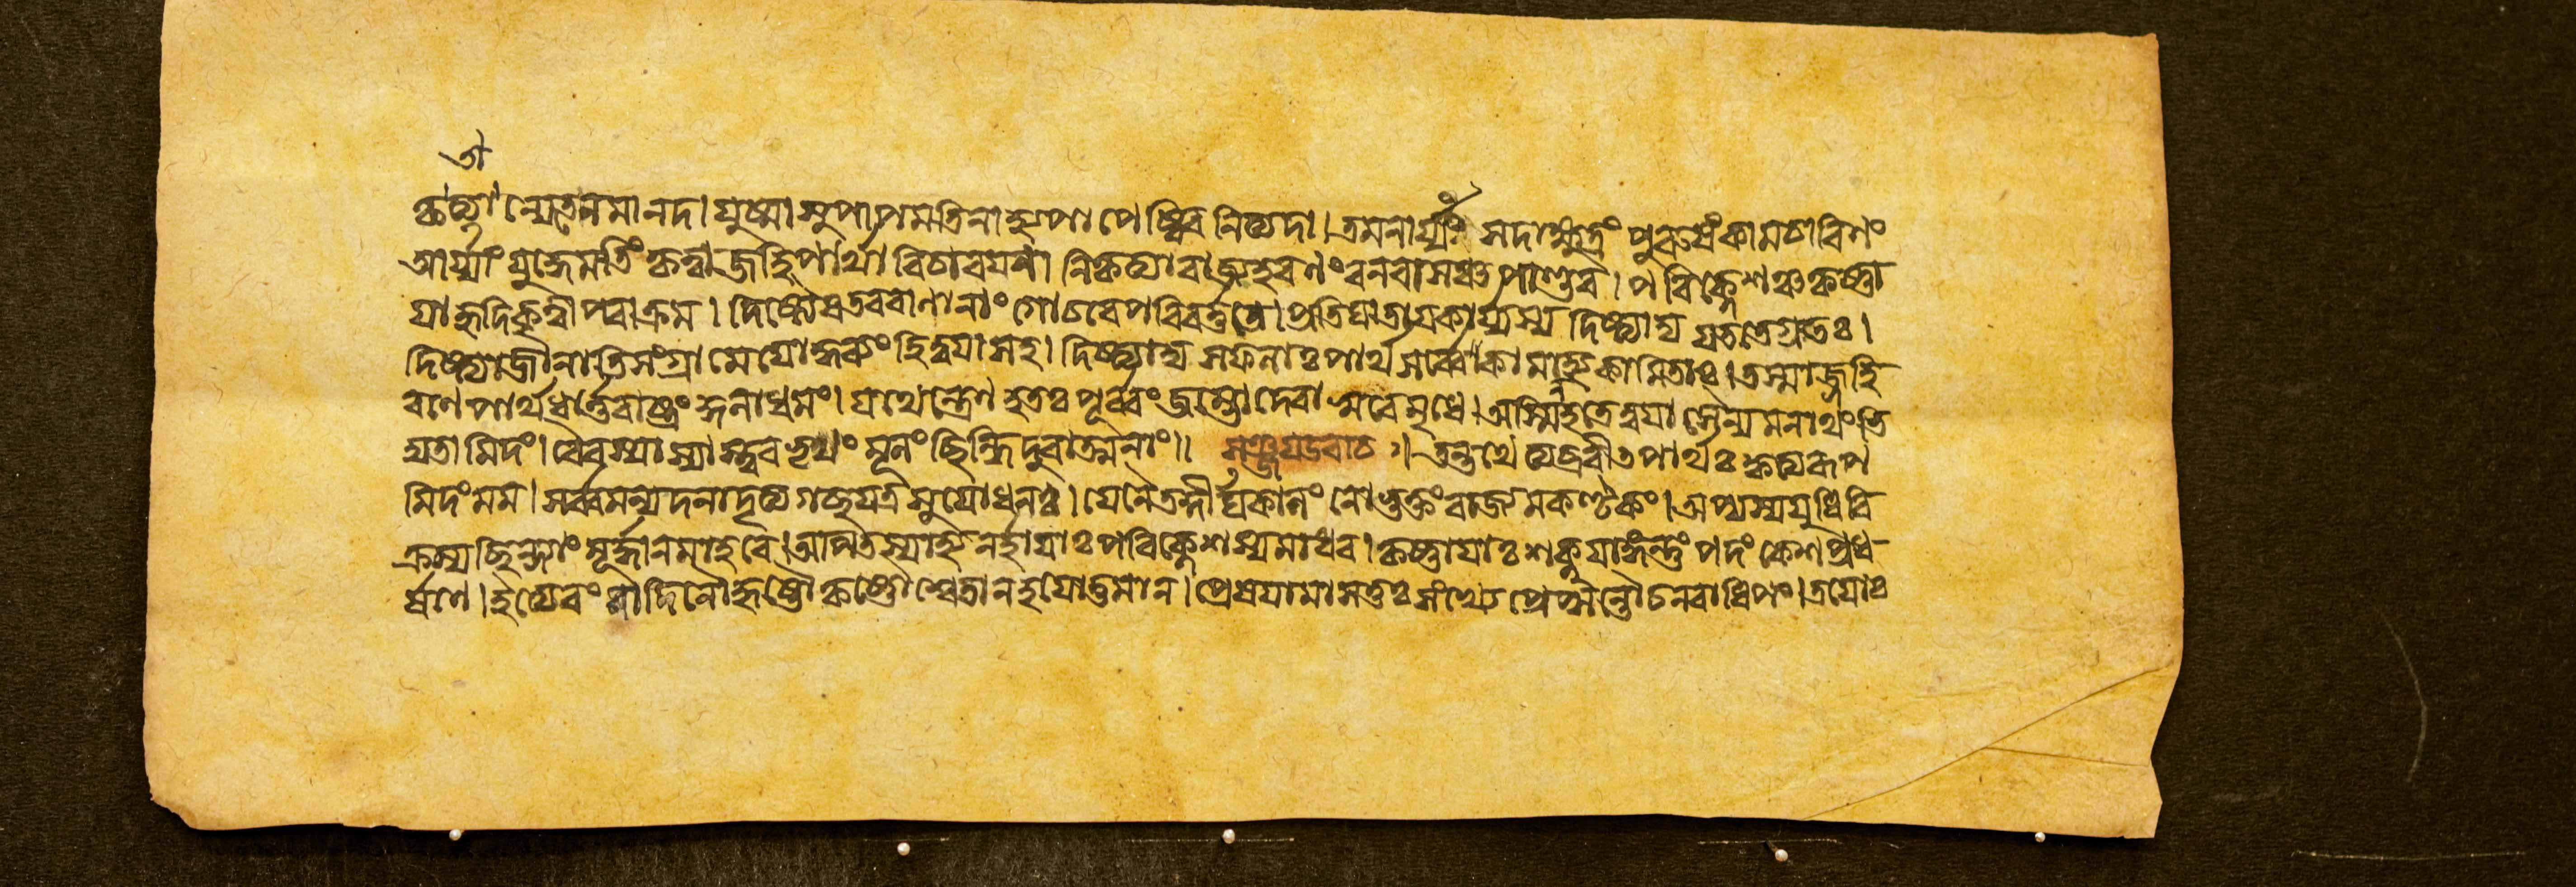 কৃতান্যেতেনমানদ। যুষ্মাসুপাপমতিনাহ্যপাপেষ্বেব নিত্যদা। তমনার্য্যং সদাক্ষুদ্রং পুরুষংকামচারিণং
আর্য্যাং যুদ্ধেমতিং কৃত্বা জহিপার্থাবিচারয়ন। নিকৃত্যারাজ্যহরণং বনবাসঞ্চপাণ্ডব। পরিক্লেশঞ্চকৃষ্ণা
য়াহৃদিকৃত্বাপরাক্রম। দিষ্ট্যৈষতববাণানাং গোচরেপরিবর্ত্ততে। প্রতিঘাতায়কার্য্যস্য দিষ্ট্যাচ যততেগ্রতঃ।
দিষ্ট্যাজানাতিসংগ্রামেযোদ্ধব্যংহিত্বয়াসহ। দিষ্ট্যাচ সফলাঃপার্থসর্ব্বেকামাহ্যকামিতাঃ। তস্মাজ্জহি
রণেপার্থধার্ত্তরাষ্ট্রং কুলাধমং। যথেন্দ্রেণ হতঃপূর্ব্বং জম্ভোদেবাসুরেমৃধে। অস্মিন্হতেত্বয়া সৈন্যমনাথংভি
দ্যতামিদং। বৈরস্যাস্যাস্ত্ববভৃথং মূলং ছিন্ধিদুরাত্মনাং॥ সঞ্জয়উবাচ॥ তন্তথেত্যব্রবীৎপার্থঃ কৃত্যরূপ
মিদংমম। সর্ব্বমন্যদনাদৃত্য গচ্ছযত্রসুযোধনঃ। যেনৈতদ্দীর্ঘকালং নোভুক্তংরাজ্যমকণ্টকং। অপ্যস্যযুধিবি
ক্রম্যছিন্দ্যাং মূর্দ্ধানমাহবে। অপিতস্যাহ্যনর্হায়াঃপরিক্লেশস্যমাধব। কৃষ্ণায়াঃশক্নুয়াংগন্তুং পদংকেশপ্রধ-
র্ষণে। ইত্যেবং বাদিনৌহৃষ্টৌকৃষ্ণৌশ্বেতানহয়োত্তমান। প্রেষয়ামাসতুঃসংখ্যে প্রেপ্সন্তৌচনরাধিপং। তয়োঃ